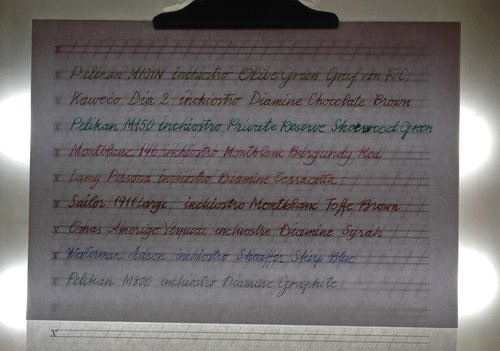 Pelikan M101N inchiostro Olive Green Graf von F.C.
Kaweco Dia 2 inchiostro Diamine Chocolate Brown
Pelikan M150 inchiostro Private Reserve Sherwood Green
Montblanc 146 inchiostro Montblanc Burgundy Red
Lamy Persona inchiostro Diamine Terracotta
Sailor 1911 large inchiostro Montblanc Toffe Brown
Omas Amerigo Vespucci inchiostro Diamine Syrah
Waterman Edson inchiostro Sheaffer Skrip Blue
Pelikan M800 inchiostro Diamine Graphite
x